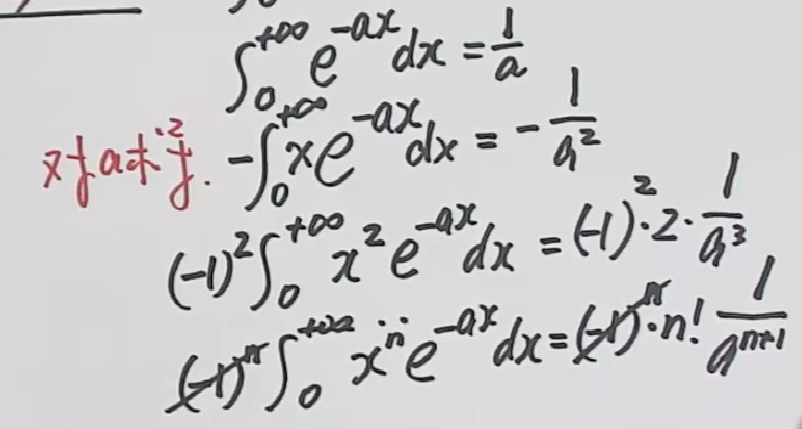 ∫₀^{+∞} e^{-ax} dx = 1/a
对a求导. -∫₀^{+∞} x e^{-ax} dx = - 1/a²
(-1)² ∫₀^{+∞} x² e^{-ax} dx = (-1)²·2· 1/a³
(-1)ⁿ ∫₀^{+∞} xⁿ e^{-ax} dx = (-1)ⁿ·n! 1/a^{n+1}